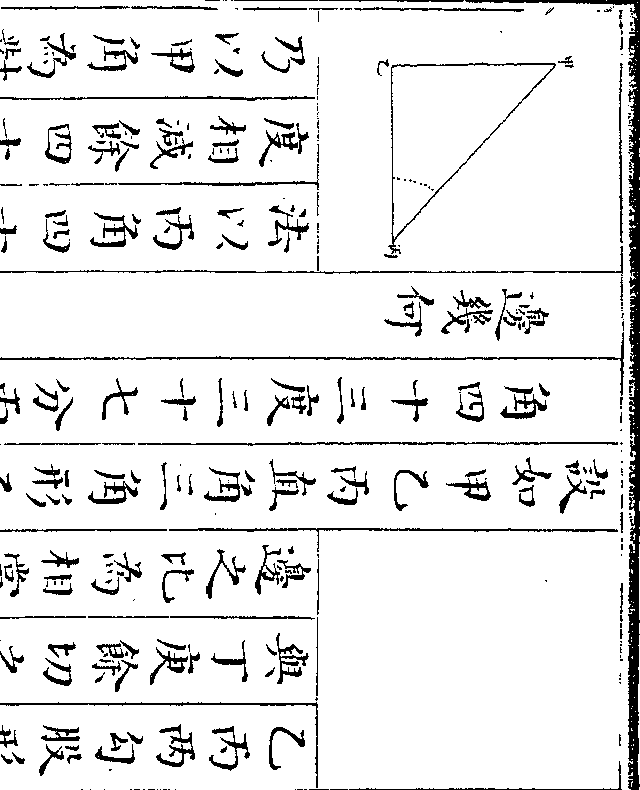 乙丙兩勾股形
與丁庚餘切之
邊之比為相當
設如甲乙丙直角三角形乙
角四十三度三十七分丙
邊幾何
甲
乙
丙
法以丙角四十
度相減餘四十
乃以甲角為對